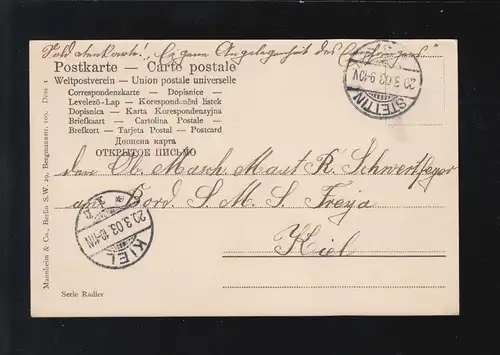 Feldpostkarte! "Eigene Angelegenheit des Empfängers"
Postkarte — Carte postale
Weltpostverein — Union postale universelle
Correspondenzkarte — Dopisnice —
Levelező-Lap — Korespondenční lístek
Dopisnica — Karta Korespondencyjna
Briefkaart — Cartolina Postale —
Brefkort — Tarjeta Postal — Postcard
Дописна карта
ОТКРЫТОЕ ПИСЬМО
STETTIN
20.3.03. 9-10V
den Ob. Masch. Maat R. Schwertfeger
an Bord S. M. S. Freya
Kiel
KIEL
20.3.03. 10-11N
Mannheim & Co., Berlin S.W. 29, Bergmannstr. 105. Dess 1
Serie Radler